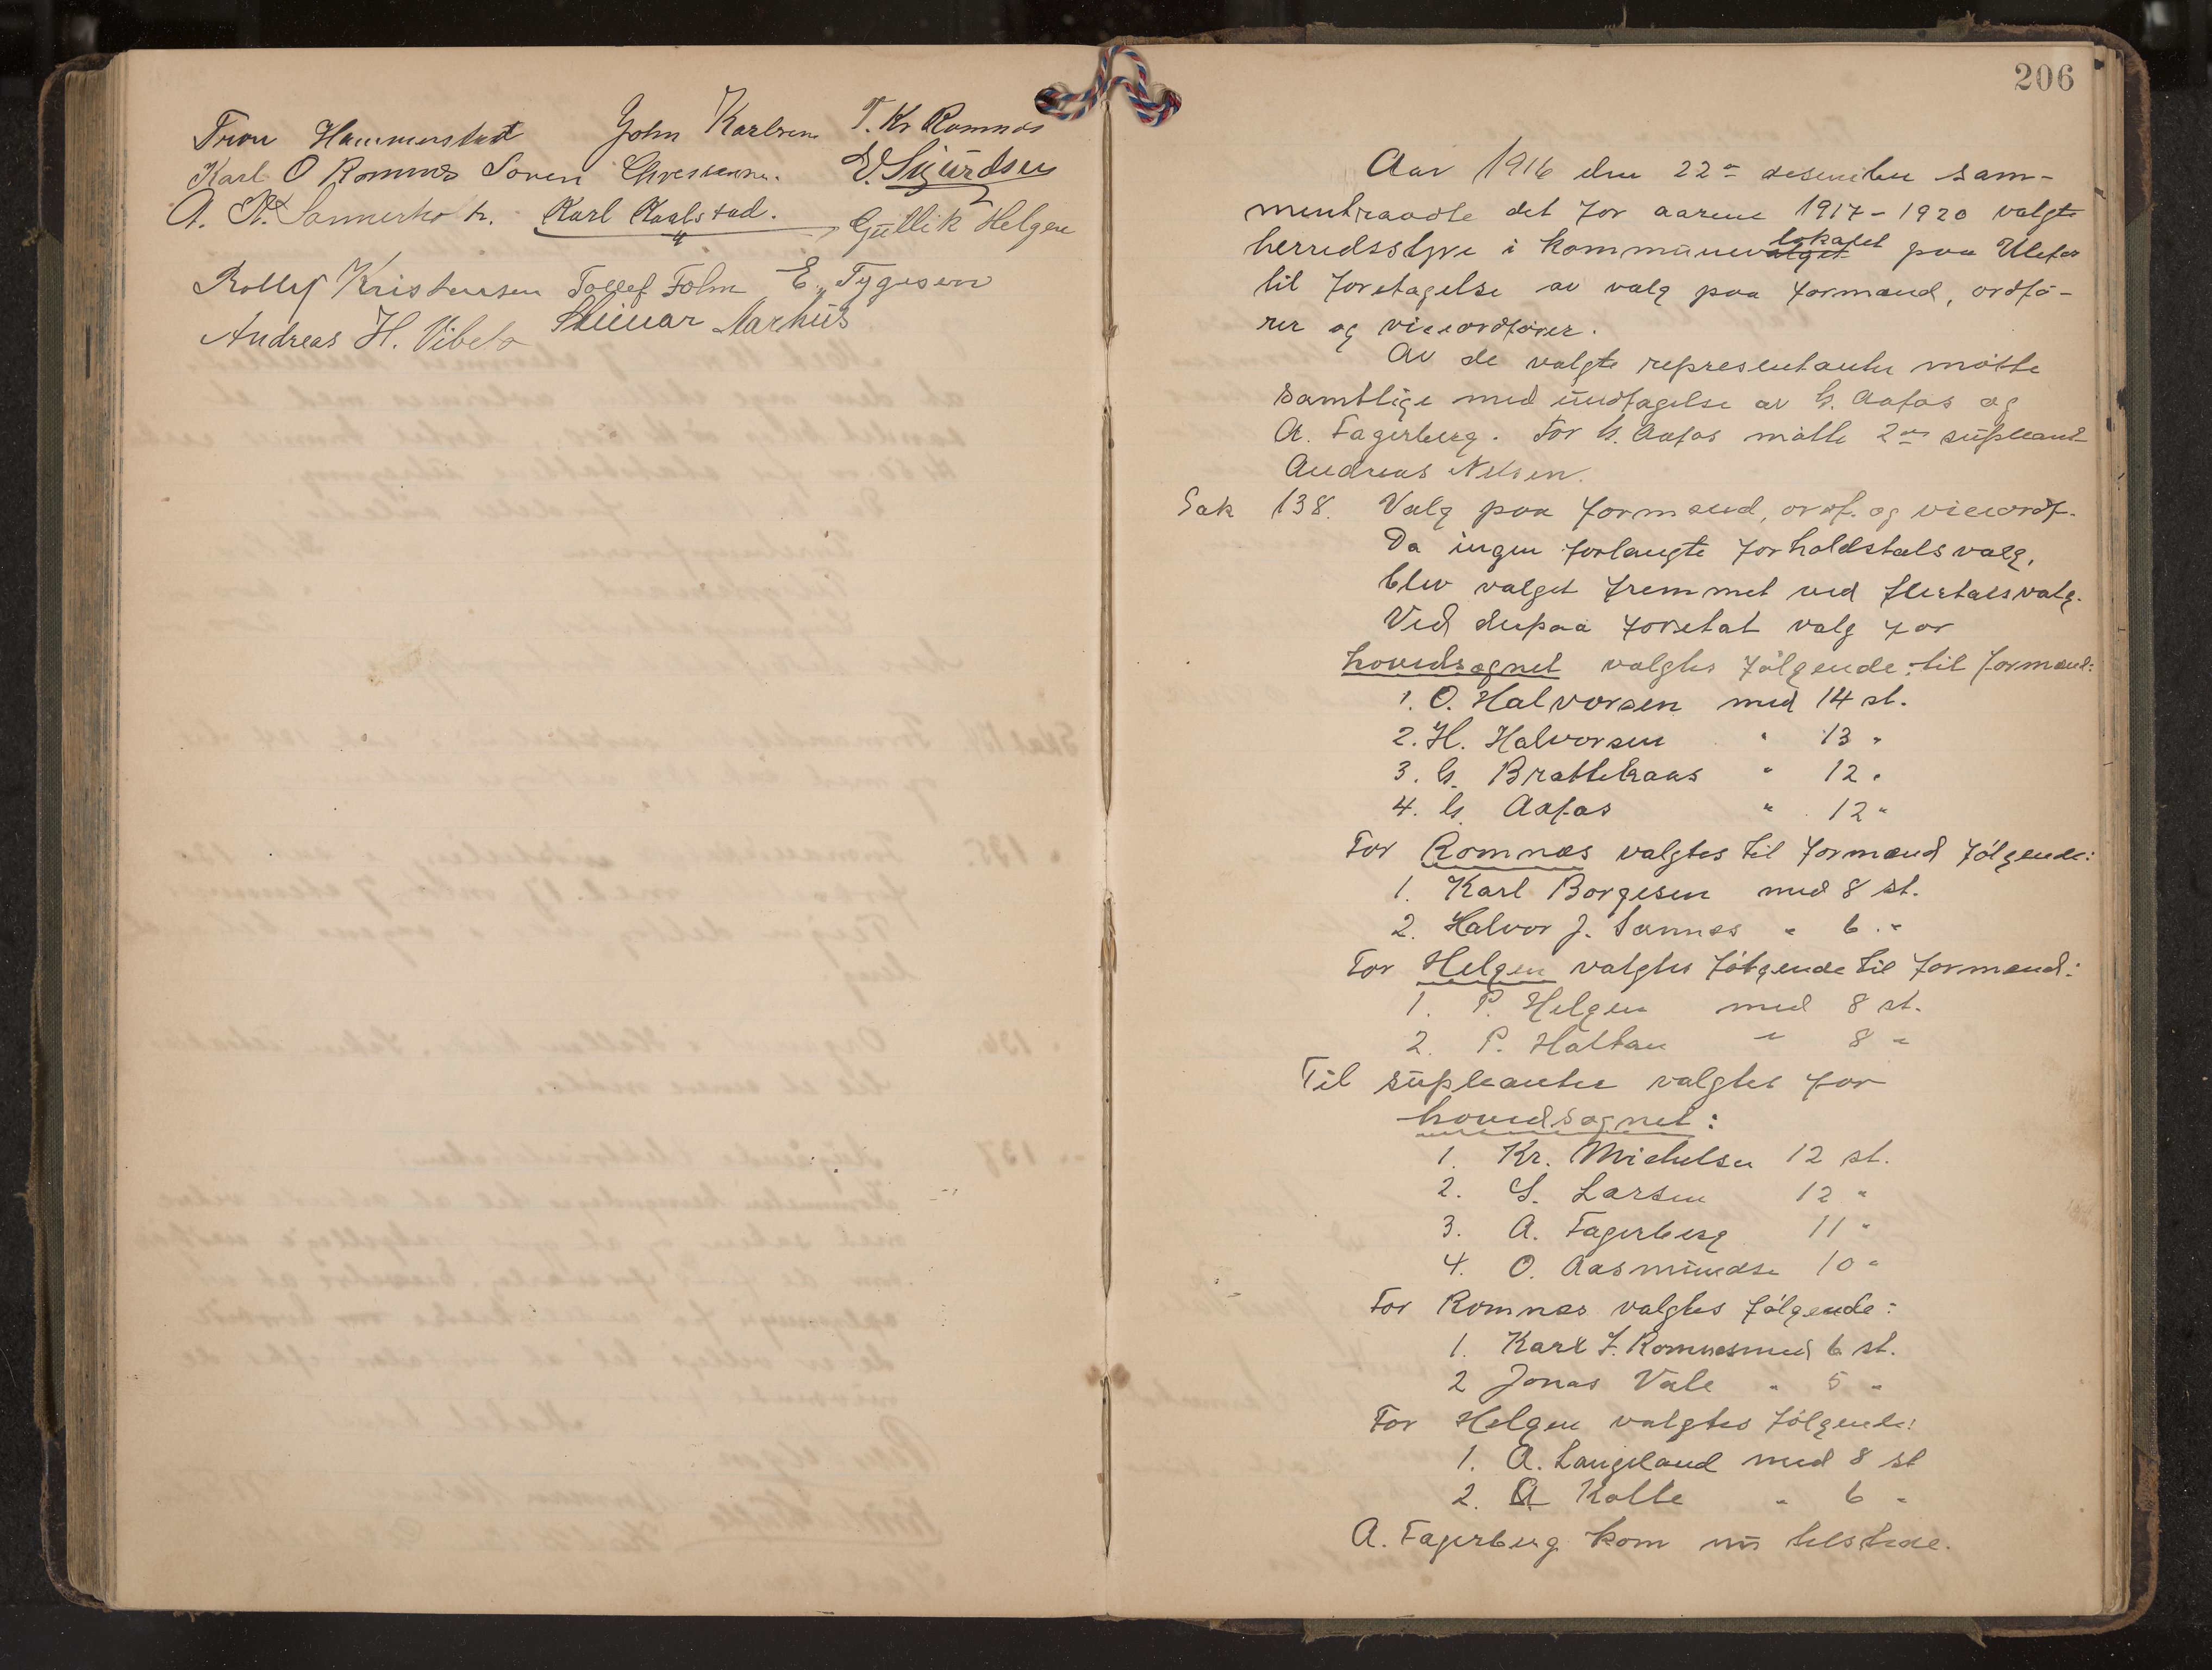 Hammerstad John Karlsen T. Kr Romnes
Karl O Romnes Soren E. Sigurdsen
A. K. Sannerholt. Karl Kaalstad. Gullik Helgen
Rollef Kristensen Tollef Folm E. Tygesen
Andreas H. Vibeto Steinar Aarhus
206
Aar 1916 den 22de desember sam-
mentraadte det for aarene 1917-1920 valgte
herredsstyre i kommunevalget lokalet paa Ulefos
til foretagelse av valg paa formænd, ordfø-
rer og viceordfører.
Av de valgte representanter møtte
samtlige med undtagelse av G. Aafos og
A. Fagerberg. For G. Aafos møtte 2den supleant
Andreas Nilsen.
Sak 138. Valg paa formænd, ordf. og viceordf.
Da ingen forlangte forholdstalsvalg,
blev valget fremmet ved flertalsvalg.
Ved derpaa foretat valg for
hovedsognet valgtes følgende til formænd:
1. O. Halvorsen med 14 st.
2. H. Halvorsen " 13 "
3. G. Brattekaas " 12 "
4. G. Aafos " 12 "
For Romnes valgtes til formænd følgende:
1. Karl Borgesen med 8 st.
2. Halvor J. Sannes " 6 "
For Helgen valgtes følgende til formænd:
1. P. Helgen med 8 st.
2. P. Holtan " 8 "
Til supleanter valgtes for
hovedsognet:
1. Kr. Michelsen 12 st.
2. S. Larsen 12 "
3. A. Fagerberg 11 "
4. O. Aasmundse 10 "
For Romnes valgtes følgende:
1. Karl J. Romnes med 6 st.
2 Jonas Vale " 5 "
For Helgen valgtes følgende:
1. A. Langeland med 8 st
2. A Kolte " 6 "
A. Fagerberg kom nu tilstede.